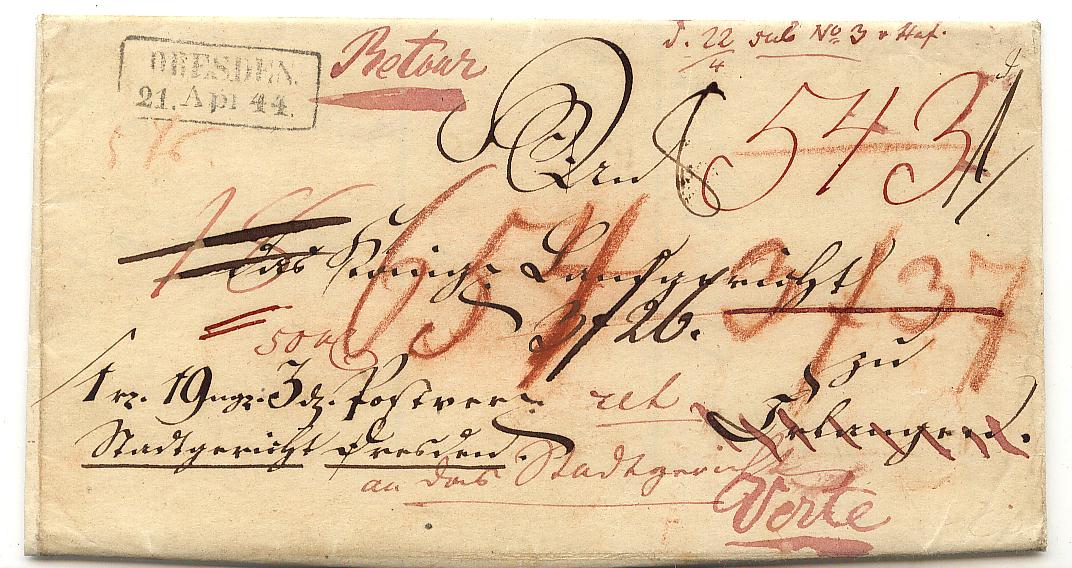 DRESDEN.
21. Apr 44.
Retour
d. 22/4 sub No 3 v Haf.
An
543
das Königl. Landgericht
3/26.
3/37
zu
1 rz. 19 ngr. 3 dz. Postver:
ret
Erlangen.
Stadtgericht Dresden.
an das Stadtgericht
Verte